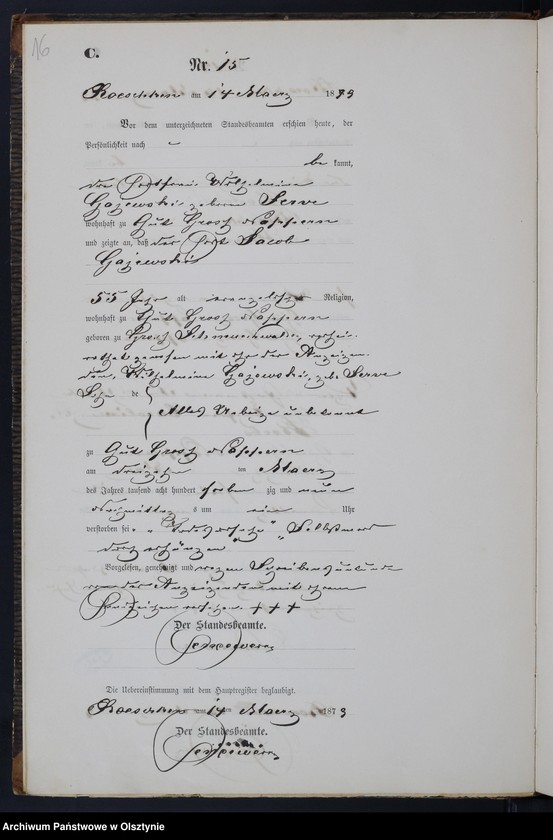 16
C.
Nr. 15
Roeschken am 14 Maerz 1879
Vor dem unterzeichneten Standesbeamten erschien heute, der
Persönlichkeit nach
bekannt,
die Wilhelmine
Gajewski geboren Serve
wohnhaft zu Gut Gross Nappern
und zeigte an, daß der Jacob
Gajewski
55 Jahr alt evangelischer Religion,
wohnhaft zu Gut Gross Nappern
geboren zu Gross verhei-
rathet gewesen mit der Anzeigen-
den, Wilhelmine Gajewski, geb. Serve
Sohn de
Alles Uebrige unbekannt
zu Gut Gross Nappern
am dreizehn ten Maerz
des Jahres tausend acht hundert sieben zig und neun
Vormittags um ein Uhr
verstorben sei. "Todesursache" "Selbstmord
durch erhängen"
Vorgelesen, genehmigt und wegen Schreibensunkunde
von der Anzeigenden mit ihrem
Handzeichen versehen. + + +
Der Standesbeamte.
Die Uebereinstimmung mit dem Hauptregister beglaubigt.
Roeschken am 14 ten Maerz 1879
Der Standesbeamte.
Archiwum Państwowe w Olsztynie